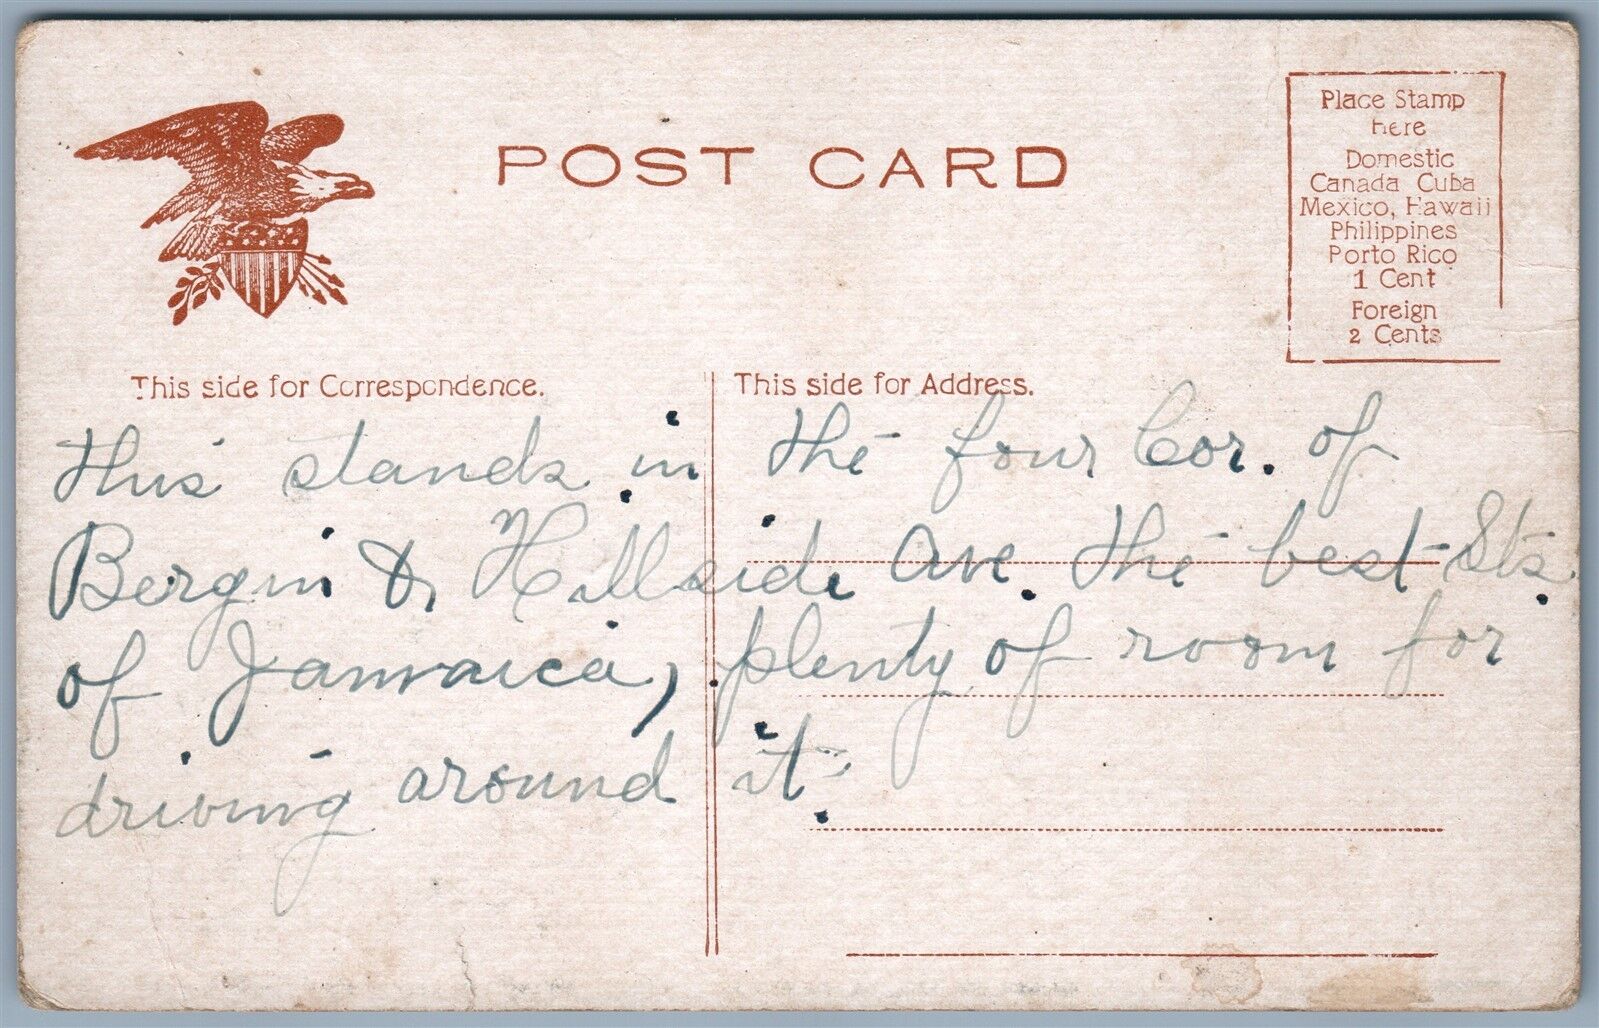 POST CARD
Place Stamp
here
Domestic
Canada Cuba
Mexico, Hawaii
Philippines
Porto Rico
1 Cent
Foreign
2 Cents
This side for Correspondence.
This side for Address.
this stands in the four Cor. of
Bergin & Hillside Ave. the best Sts.
of Jamaica, plenty of room for
driving around it.